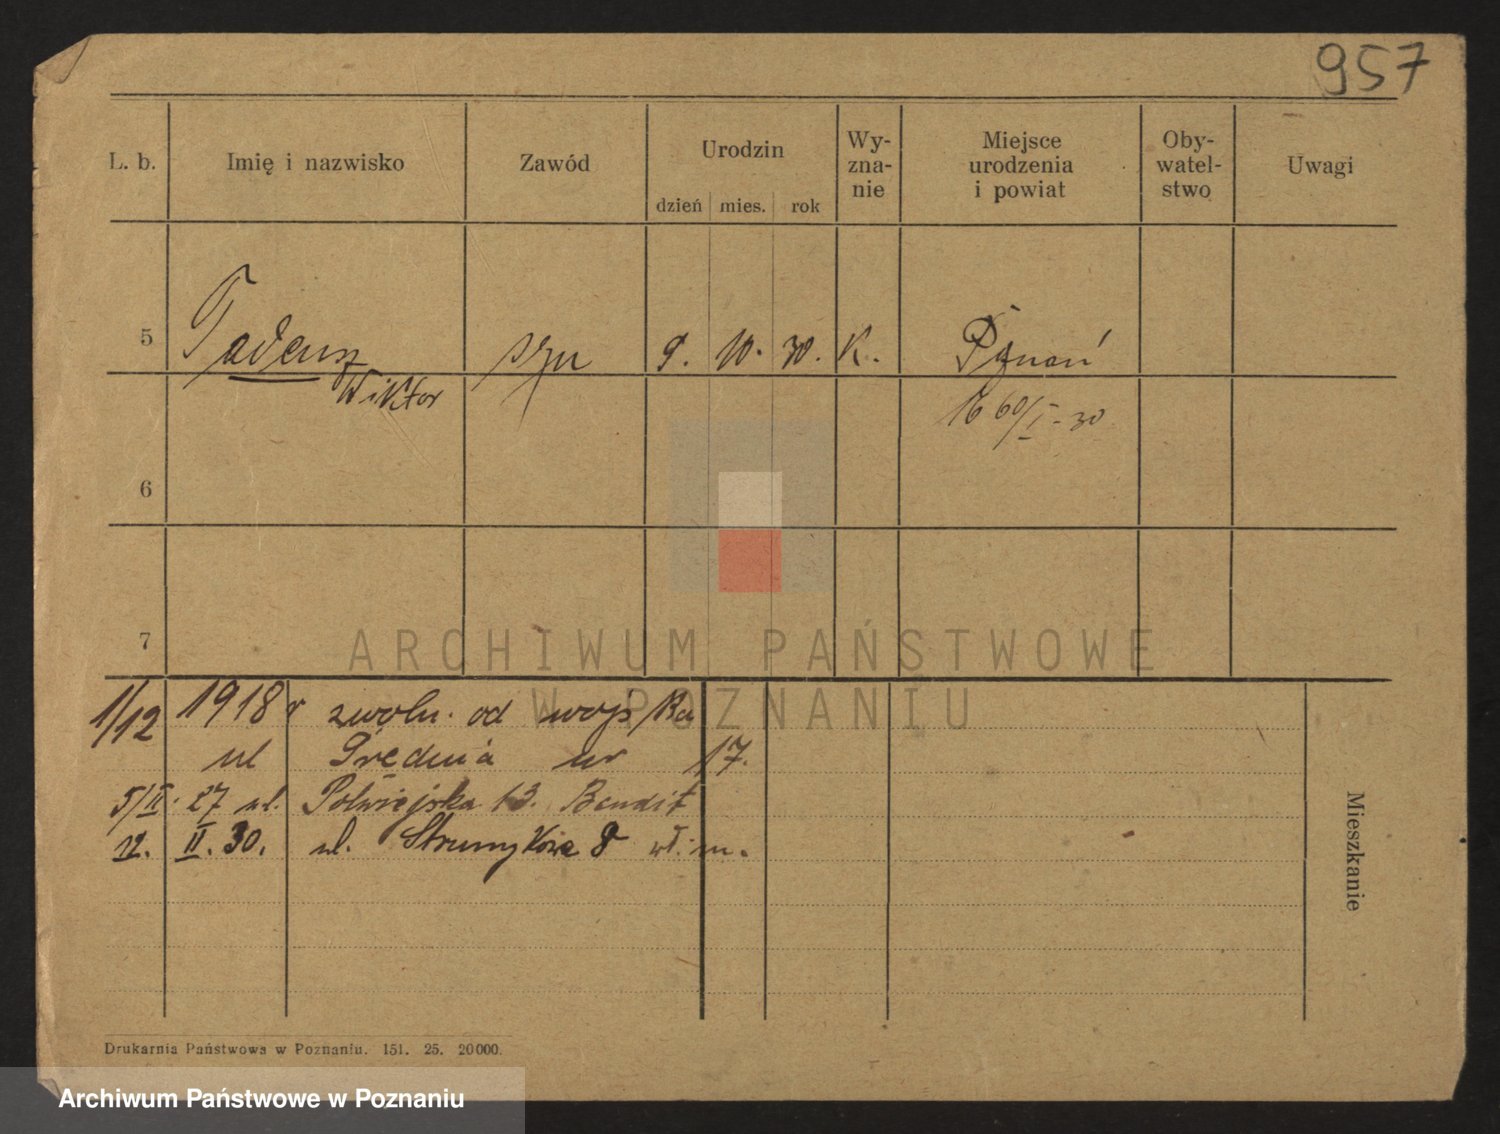 957
L. b. Imię i nazwisko Zawód Urodzin dzień mies. rok Wy-
zna-
nie Miejsce
urodzenia
i powiat Oby-
watel-
stwo Uwagi
5 Tadeusz 9. 10. 30. K. Poznań
Wiktor
6
7
ARCHIWUM PAŃSTWOWE
W POZNANIU
1/12 1918 r zwoln. od wojska
ul Średnia nr 17.
27 ul. Półwiejska 13.
12. II. 30. ul. Strumykowa 8
Mieszkanie
Drukarnia Państwowa w Poznaniu. 151. 25. 20000.
Archiwum Państwowe w Poznaniu